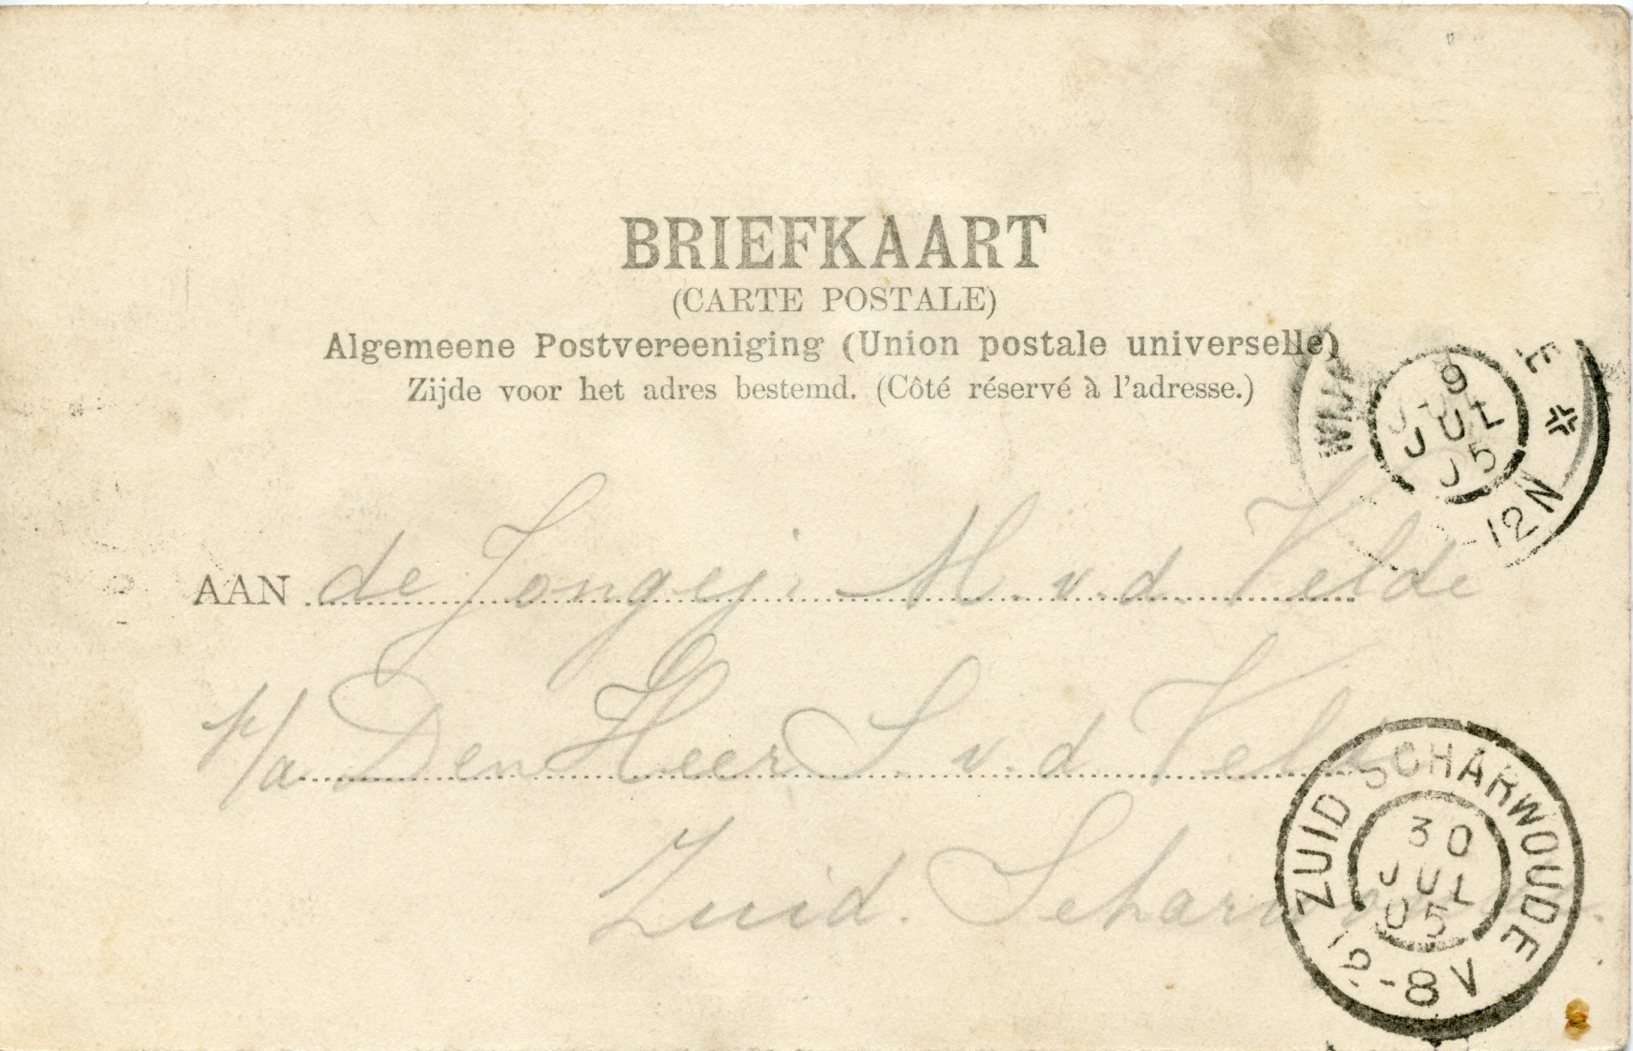 BRIEFKAART
(CARTE POSTALE)
Algemeene Postvereeniging (Union postale universelle)
Zijde voor het adres bestemd. (Côté réservé à l'adresse.)
9
JUL
05
12N
AAN de Jongej: M. v. d. Velde
p/a Den Heer S. v. d. Velde
Zuid. Scharwoude.
ZUID SCHARWOUDE
30
JUL
05
12-8V